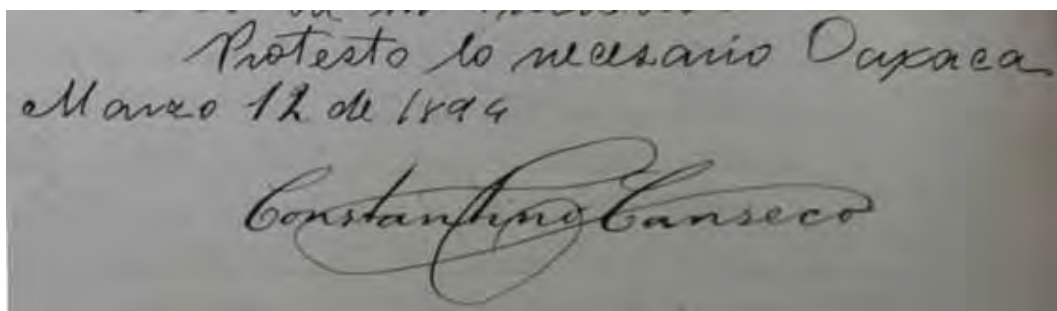 Protesto lo necesario Oaxaca
Marzo 12 de 1894
Constantino Canseco